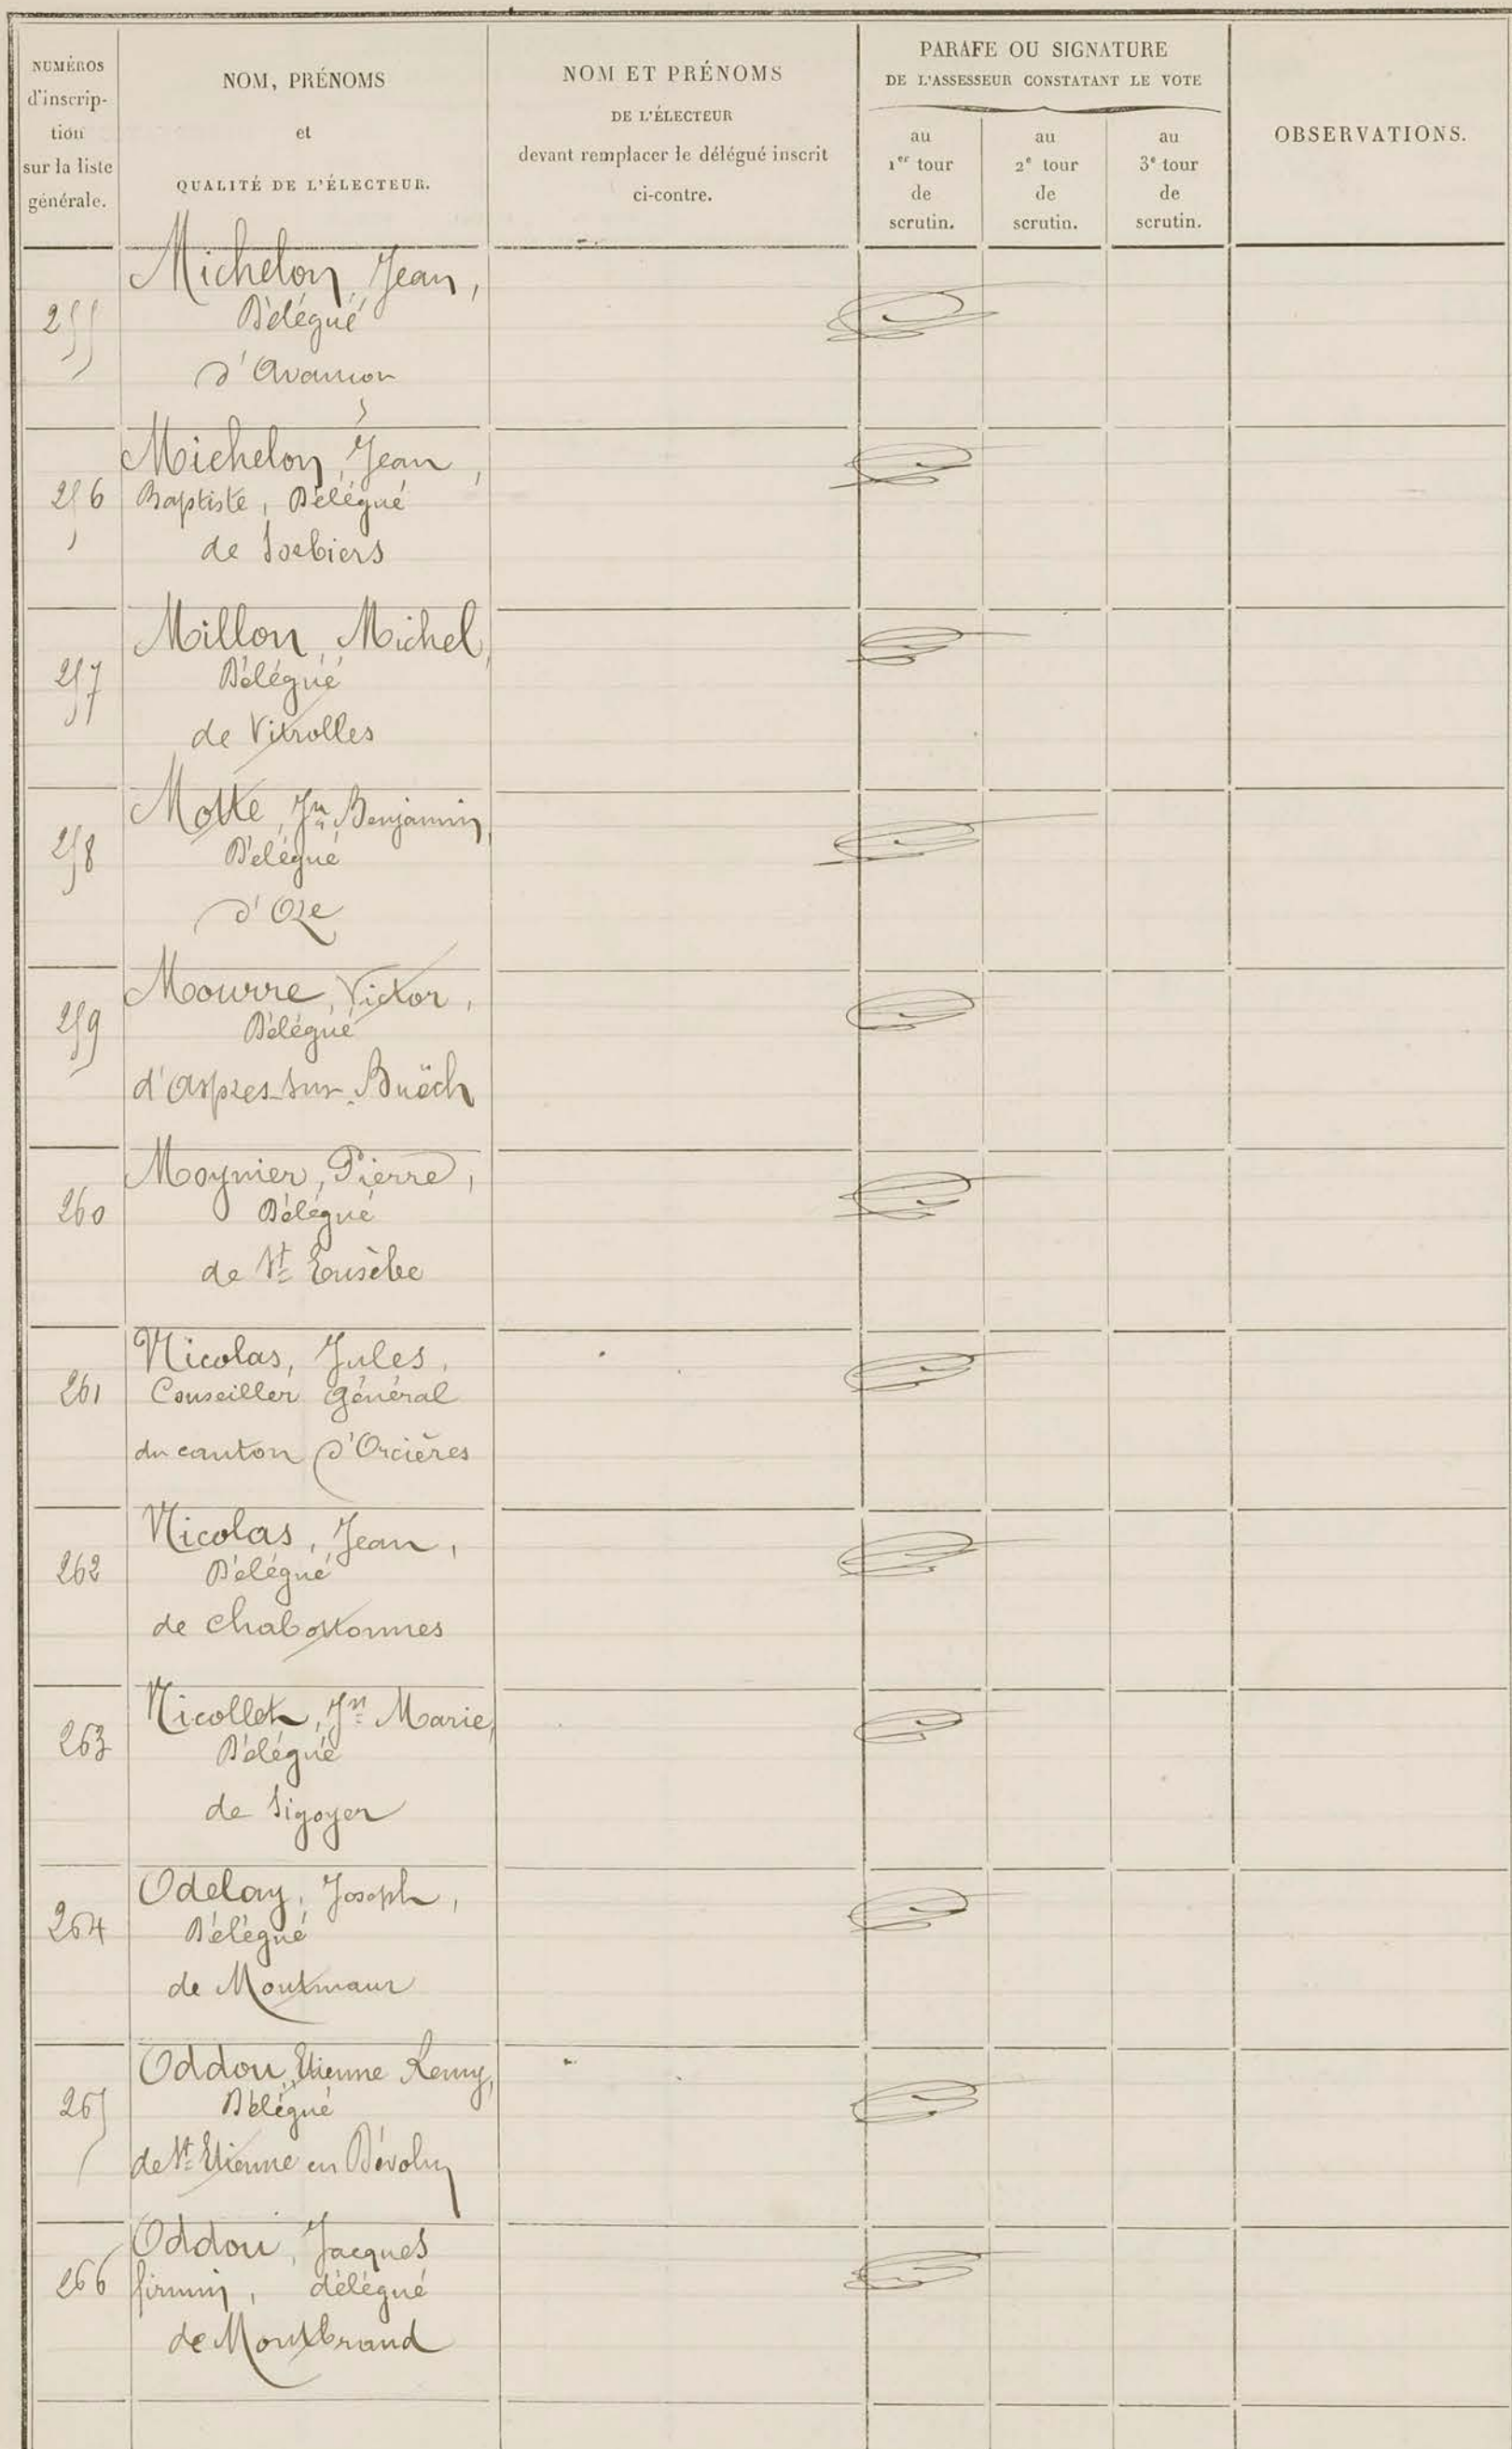 NUMÉROS
d'inscrip-
tion
sur la liste
générale.
NOM, PRÉNOMS
et
QUALITÉ DE L'ÉLECTEUR.
NOM ET PRÉNOMS
DE L'ÉLECTEUR
devant remplacer le délégué inscrit
ci-contre.
PARAFE OU SIGNATURE
DE L'ASSESSEUR CONSTATANT LE VOTE
au
1er tour
de
scrutin.
au
2e tour
de
scrutin.
au
3e tour
de
scrutin.
OBSERVATIONS.
Michelon, Jean,
255 Délégué
d'Avançon
Michelon, Jean,
256 Baptiste, Délégué
de Sorbiers
Millon, Michel,
257 Délégué
de Vitrolles
Motte, Jn Benjamin,
258 Délégué
d'Oze
Mourre, Victor,
259 Délégué
d'Aspres-sur-Buëch
Moynier, Pierre,
260 Délégué
de St Eusèbe
Nicolas, Jules,
261 Conseiller Général
du canton d'Orcières
Nicolas, Jean,
262 Délégué
de Chabottonnes
Nicollet, Jn Marie,
263 Délégué
de Sigoyer
Odelay, Joseph,
264 Délégué
de Montmaur
Oddou, Etienne Remy,
265 Délégué
de St Etienne en Dévoluy
Oddou, Jacques
266 firmin, délégué
de Montbrand